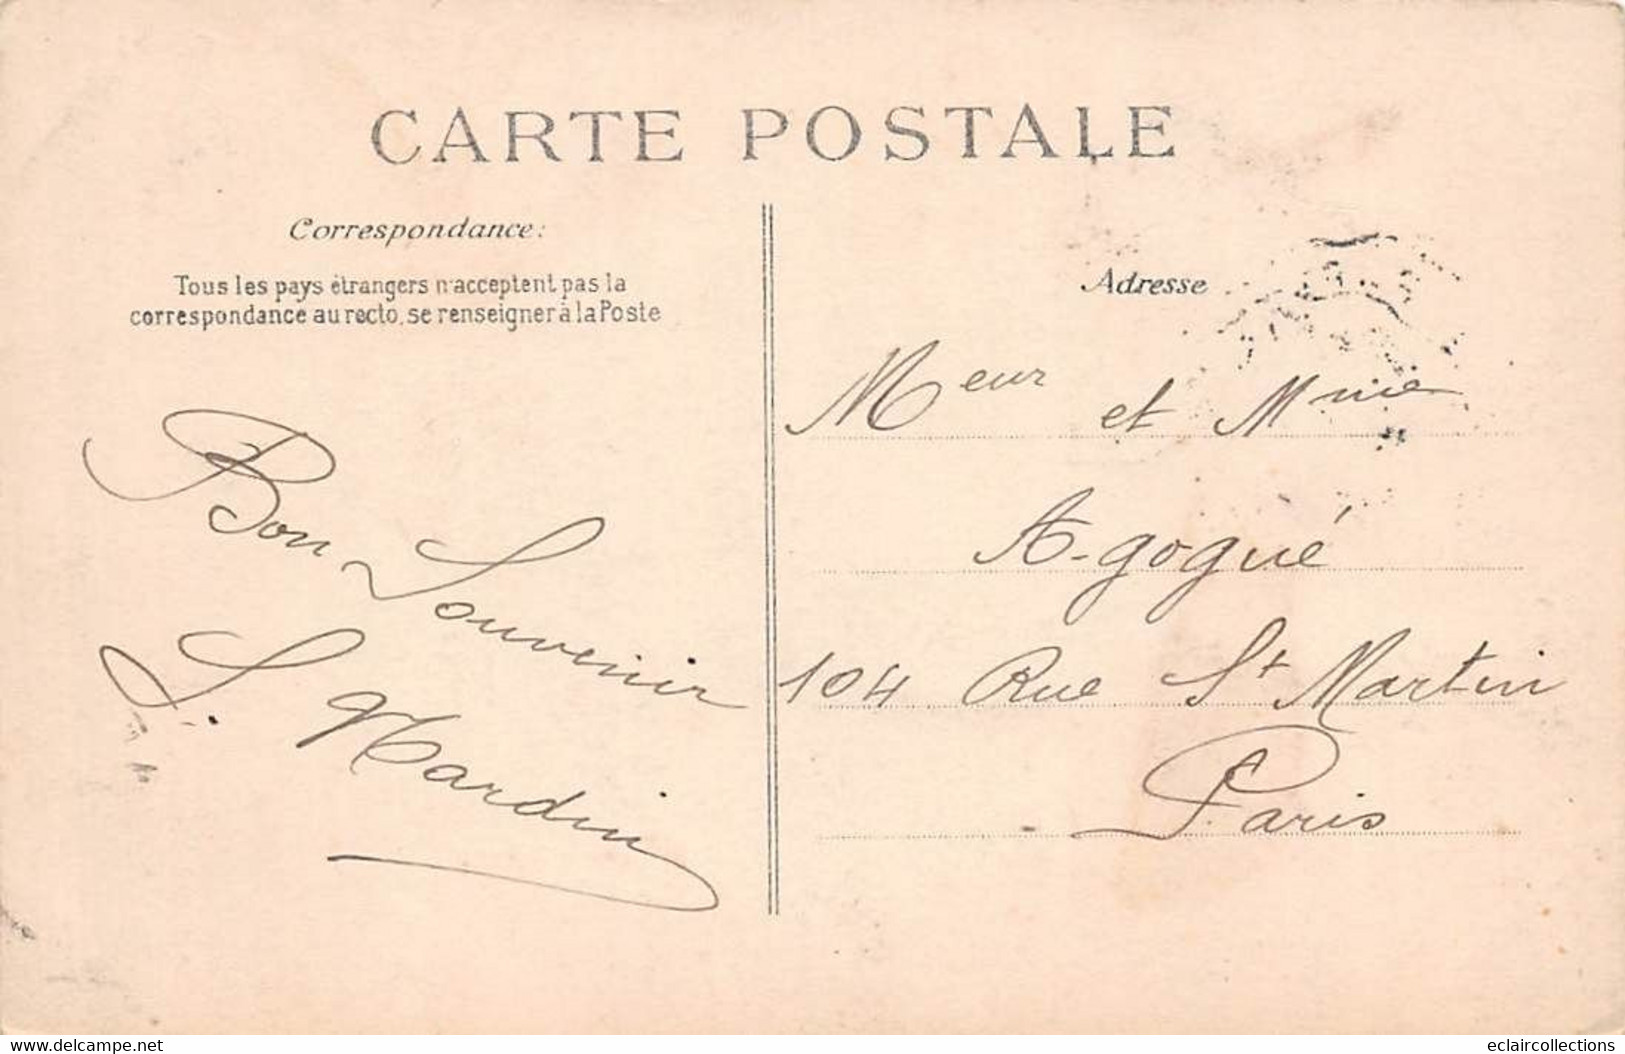 CARTE POSTALE
Correspondance:
Tous les pays étrangers n'acceptent pas la
correspondance au recto, se renseigner à la Poste
Bon Souvenir
S. Hardin
Adresse
Meur et Mme
A. gogué
104 Rue St Martin
Paris
www.delcampe.net
eclaircollections